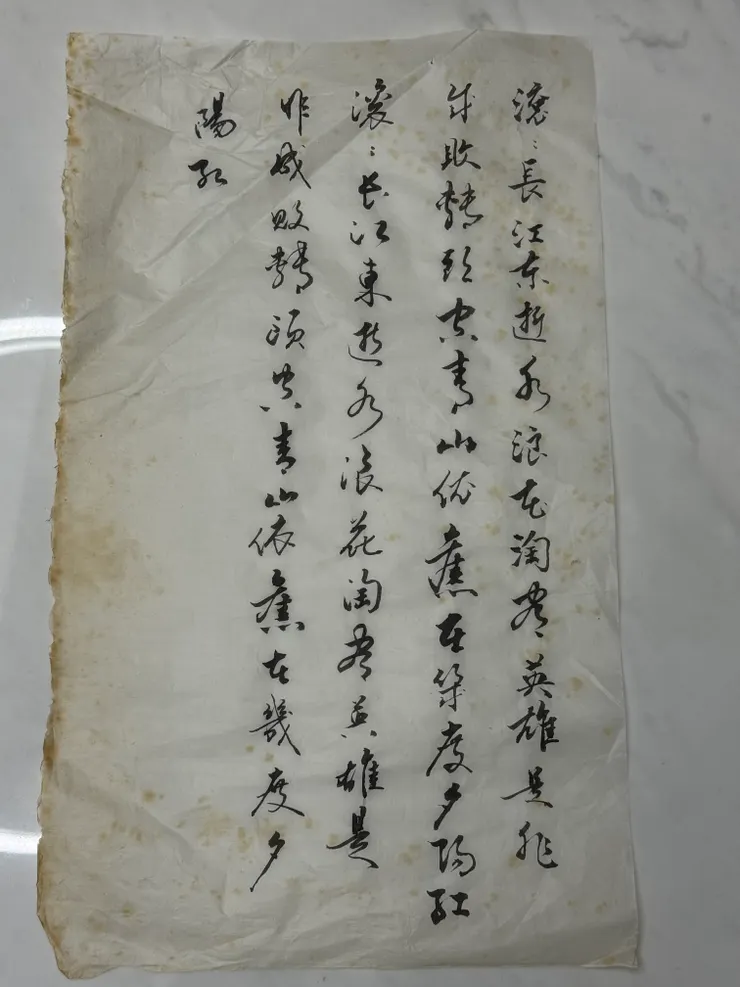 滾〻長江东逝水浪花淘尽英雄是非
成敗轉頭空青山依舊在幾度夕陽红
滚〻长江東逝水浪花淘尽英雄是
非成败轉頭空青山依舊在幾度夕
陽红